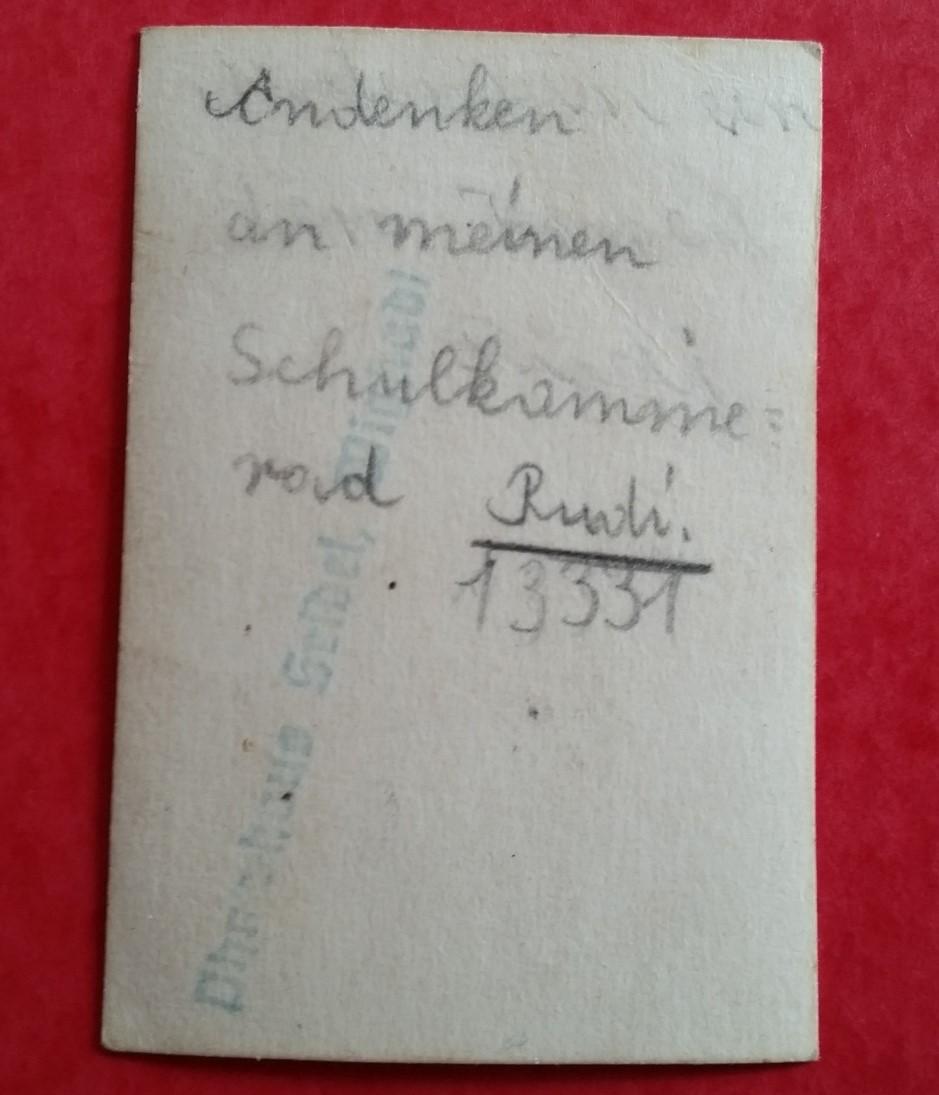 Andenken
an meinen
Schulkamme=
rad Rudi.
13331
Seidel,